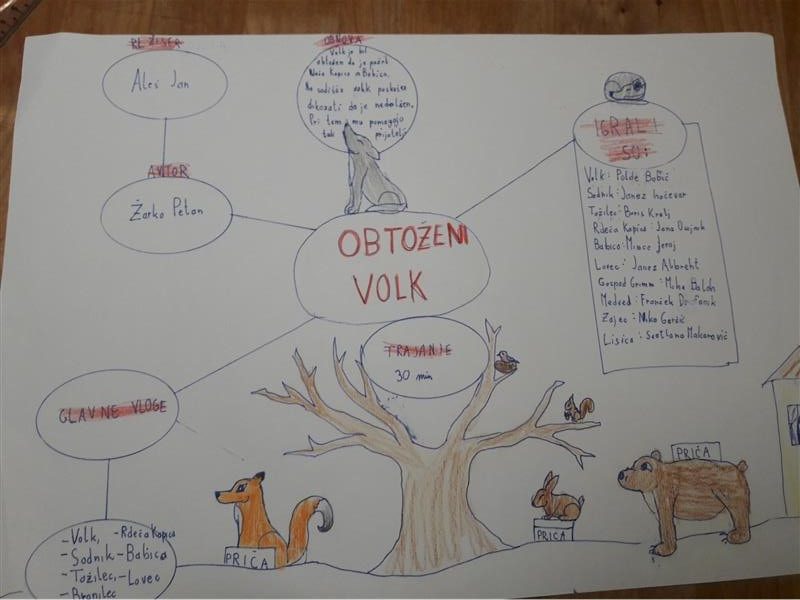 REŽISER
Aleš Jan
AVTOR
Žarko Petan
OBNOVA
Volk je bil
obtožen da je požrl
Rdečo Kapico in Babico.
Na sodišču volk poskuša
dokazati da je nedolžen.
Pri tem mu pomagajo
tudi prijatelji
OBTOŽENI
VOLK
IGRALI
SO:
Volk: Polde Bibič
Sodnik: Janez Hočevar
Tožilec: Boris Kralj
Rdeča Kapica:
Babica: Mince Jeraj
Lovec: Janez Albreht
Gospod Grimm: Miha Baloh
Medved: Franček Drofenik
Zajec:
Lisica: Svetlana Makarovič
TRAJANJE
30 min
GLAVNE VLOGE
-Volk, -Rdeča Kapica
-Sodnik -Babica
-Tožilec, -Lovec
-Branilec
PRIČA
PRIČA
PRIČA